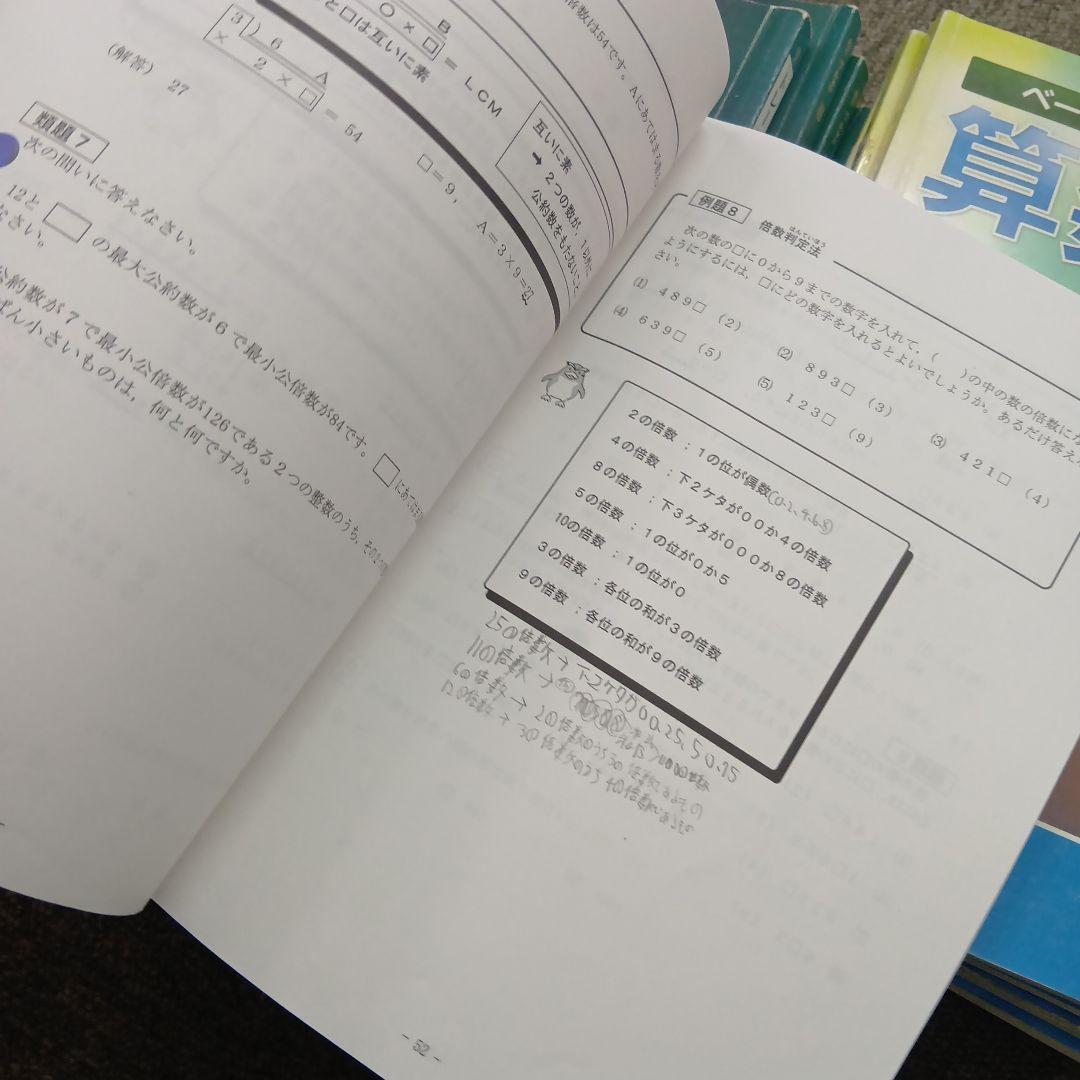 倍数は54です。Aにあてはまる
B
○ × □ = LCM
と□は互いに素
互いに素
➡ 2つの数が、1以外に
公約数をもたないこと
3 ) 6 A
× 2 × □ = 54
□=9, A=3×9=27
(解答) 27
類題7
次の問いに答えなさい。
12と□の最大公約数が6で最小公倍数が84です。□にあてはま
なさい。
公約数が7で最小公倍数が126である2つの整数のうち,その
ばん小さいものは,何と何ですか。
例題8 倍数判定法
はんていほう
次の数の□に0から9までの数字を入れて,( )の中の数の倍数にな
ようにするには,□にどの数字を入れるとよいでしょうか。あるだけ答えな
さい。
(1) 489□ (2) (2) 893□ (3) (3) 421□ (4)
(4) 639□ (5) (5) 123□ (9)
2の倍数:1の位が偶数(0.2.4.6.8)
4の倍数:下2ケタが00か4の倍数
8の倍数:下3ケタが000か8の倍数
5の倍数:1の位が0か5
10の倍数:1の位が0
3の倍数:各位の和が3の倍数
9の倍数:各位の和が9の倍数
25の倍数→下2ケタが00.25.50.75
11の倍数→
6の倍数→2の倍数のうち3の倍数であるもの
12の倍数→3の倍数のうち4の倍数であるもの
- 52 -
ベー
算数